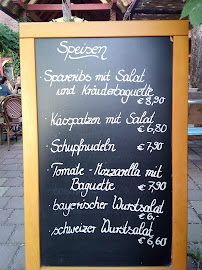 Speisen
· Spareribs mit Salat
und Kräuterbaguette
€ 8,90
· Kässpatzen mit Salat
€ 6,80
· Schupfnudeln € 7,90
· Tomate - Mozzarella mit
Baguette € 7,90
· bayerischer Wurstsalat
€ 6,-
· schweizer Wurstsalat
€ 6,60